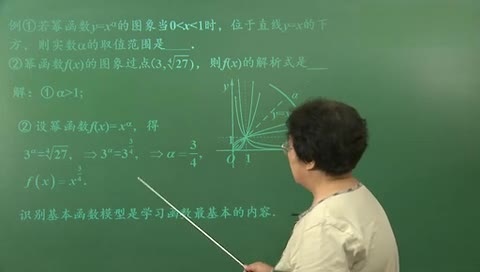 例①若幂函数y=x^α的图象当0<x<1时，位于直线y=x的下
方，则实数α的取值范围是___.
②幂函数f(x)的图象过点(3,∜27)，则f(x)的解析式是___
解：①α>1;
②设幂函数f(x)=x^α，得
3^α=∜27，⇒3^α=3^(3/4)，⇒α=3/4，
f(x)=x^(3/4).
识别基本函数模型是学习函数最基本的内容.
y
α
O
1